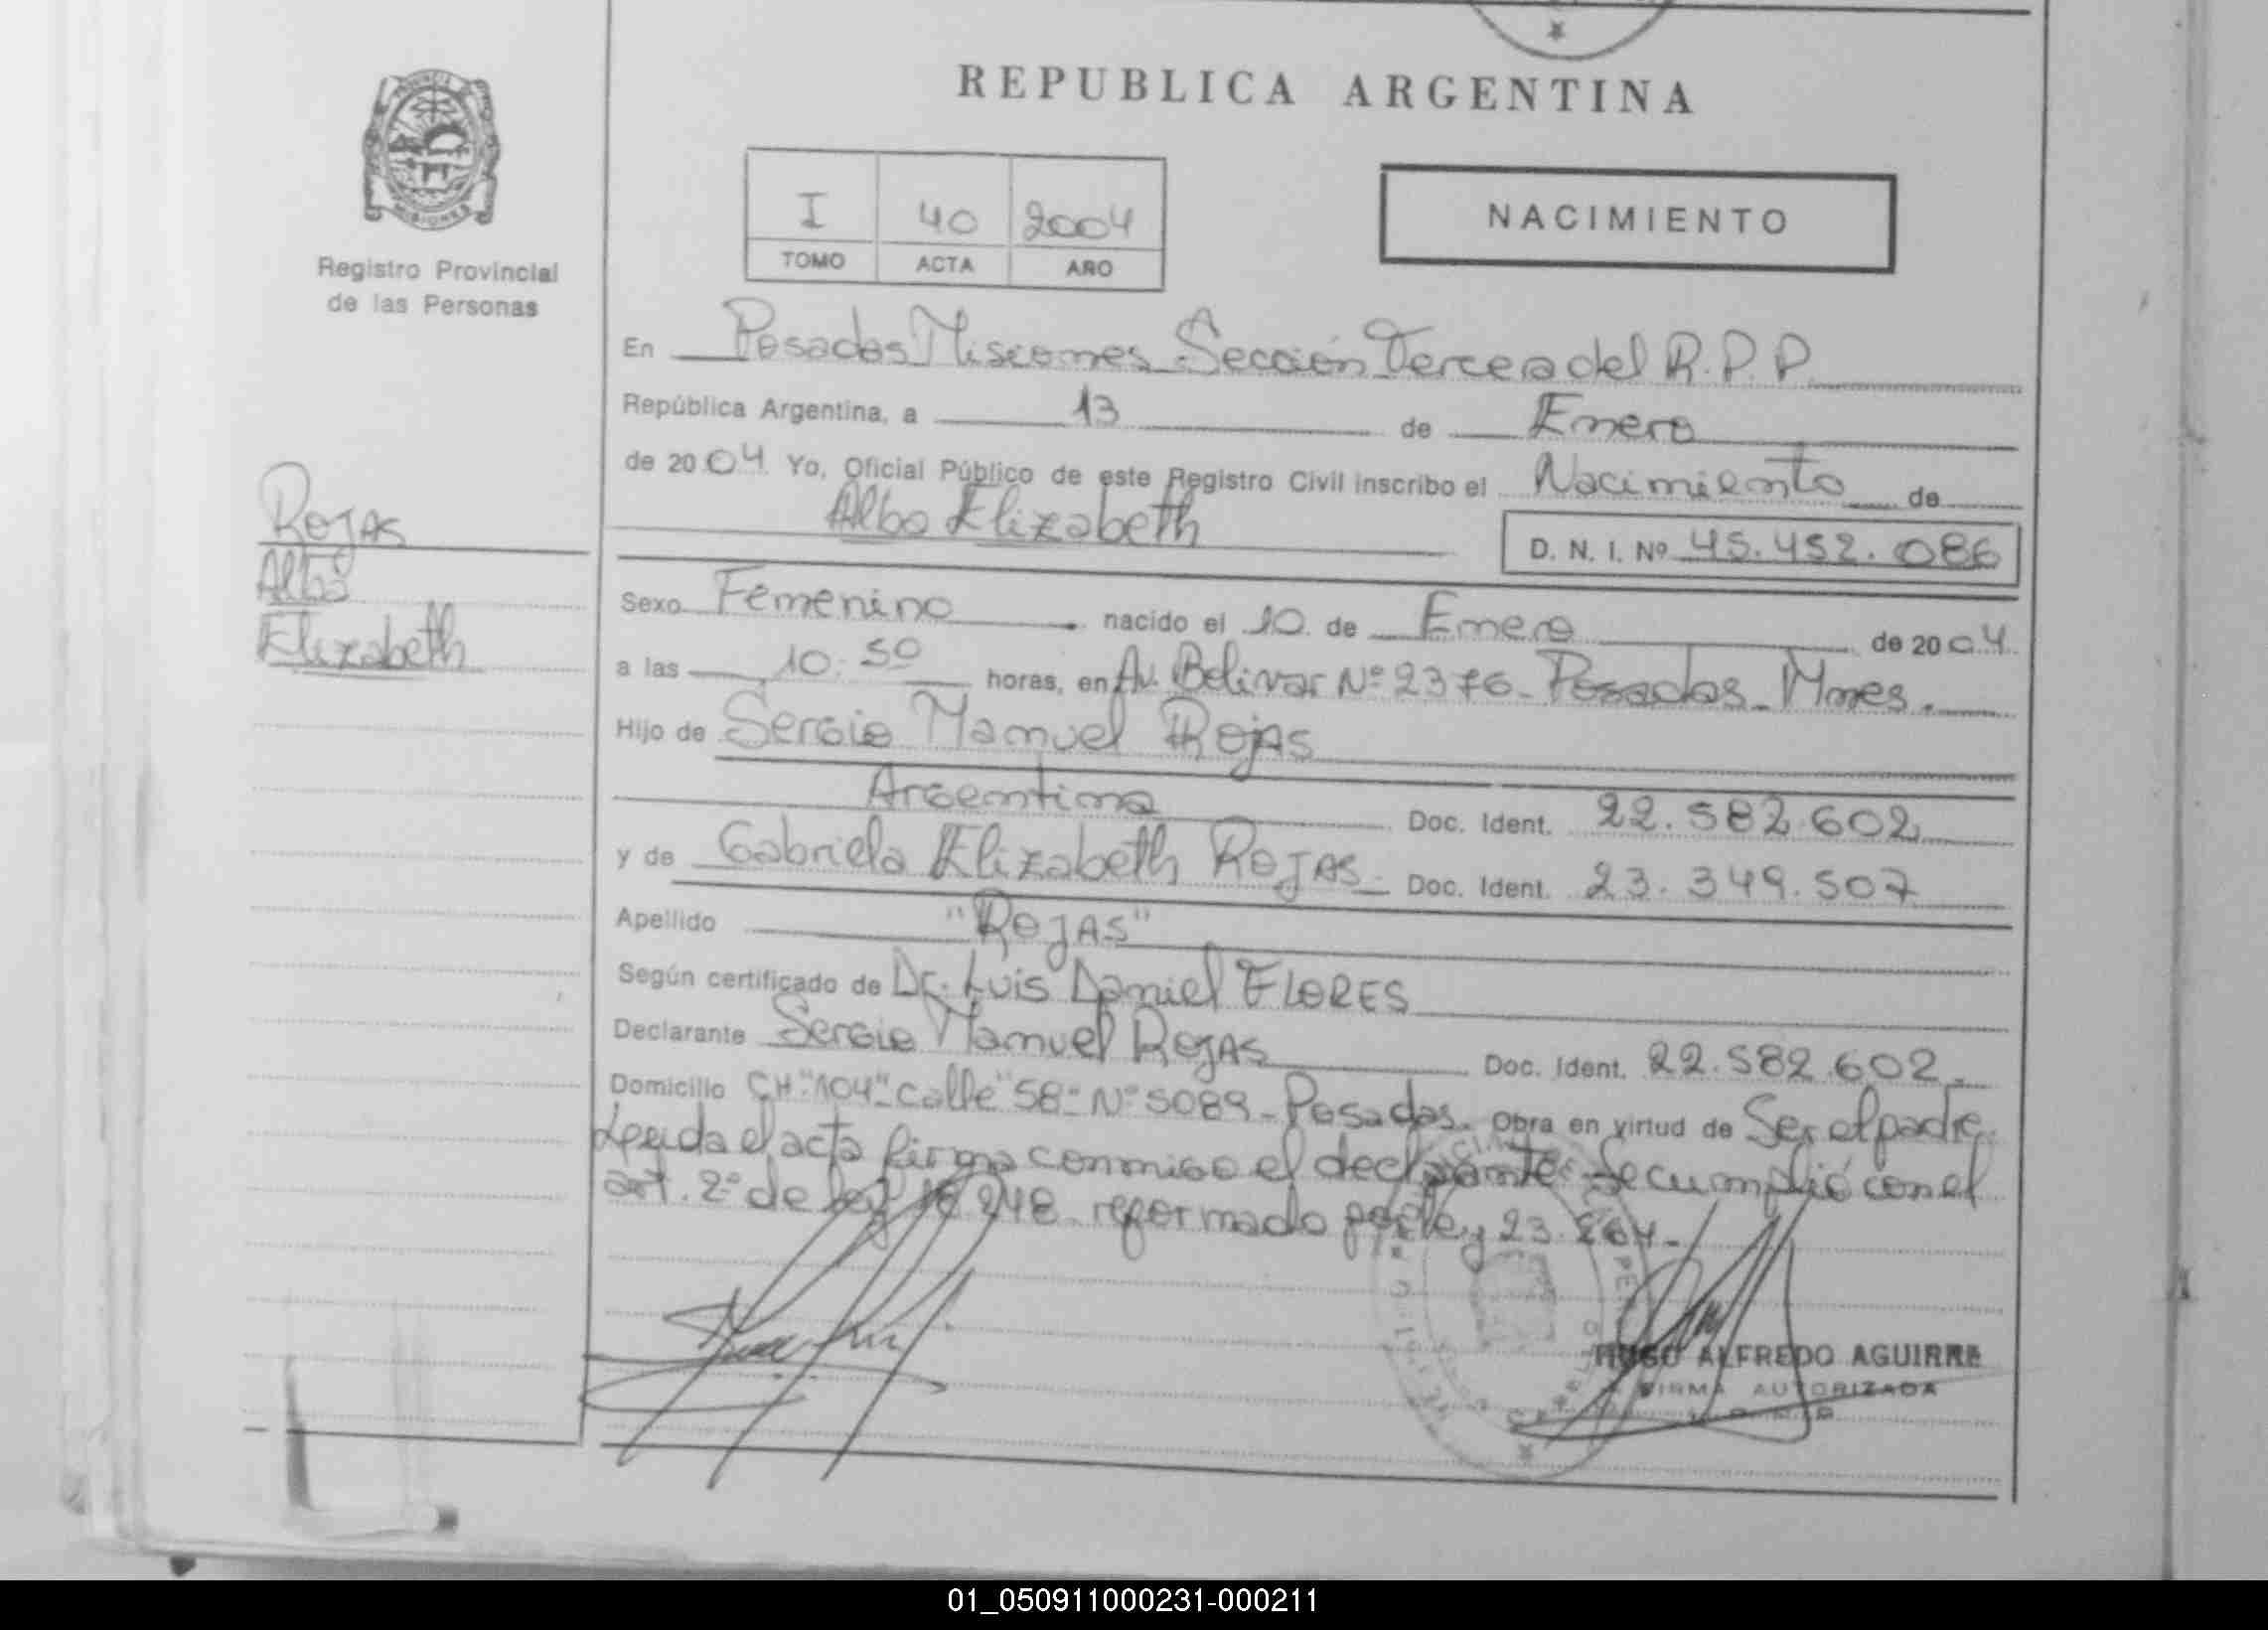 REPUBLICA ARGENTINA
MISIONES
Registro Provincial
de las Personas
I 40 2004
TOMO ACTA AÑO
NACIMIENTO
En Posadas Misiones Sección Tercera del R.P.P.
República Argentina, a 13 de Enero
de 2004 Yo, Oficial Público de este Registro Civil inscribo el Nacimiento de
Alba Elizabeth
D. N. I. Nº 45.452.086
ROJAS
Alba
Elizabeth
Sexo Femenino nacido el 10 de Enero de 2004
a las 10:50 horas, en Av. Bolivar Nº 2376 - Posadas - Mnes.
Hijo de Sergio Manuel Rojas
Argentina Doc. Ident. 22.582.602
y de Gabriela Elizabeth ROJAS- Doc. Ident. 23.349.507
Apellido "ROJAS"
Según certificado de Dr. Luis Daniel FLORES
Declarante Sergio Manuel ROJAS Doc. Ident. 22.582.602.-
Domicilio CH "104" Calle "58" Nº 5089 - Posadas. Obra en virtud de Ser el padre.
Leida el acta firma conmigo el declarante Se cumplió con el
art. 2º de ley 18.248 reformado por ley 23.264.-
HUGO ALFREDO AGUIRRE
FIRMA AUTORIZADA
01_050911000231-000211